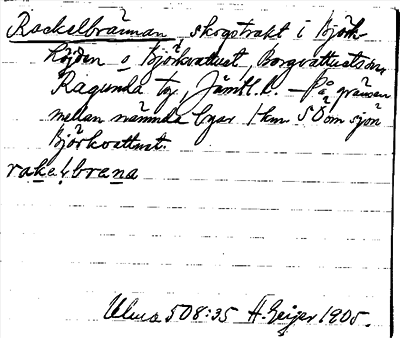 Rackelbrännan, skogstrakt i Björk-
höjden o Björkvattnet, Borgvattnets sn,
Ragunda tg, Jämtl. l. – På gränsen
mellan nämnda byar 1 km SÖ om sjön
Björkvattnet.
rakeḷbrena
Ulma 508:35 H. Geijer 1905.